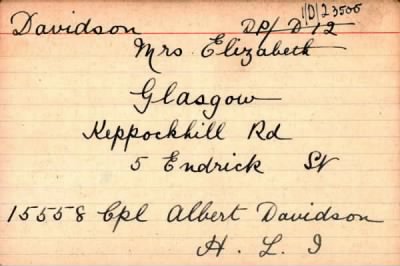 Davidson DP/D 12 1/D/23505
Mrs Elizabeth
Glasgow
Keppockhill Rd
5 Endrick St
15558 Cpl Albert Davidson
H. L. I